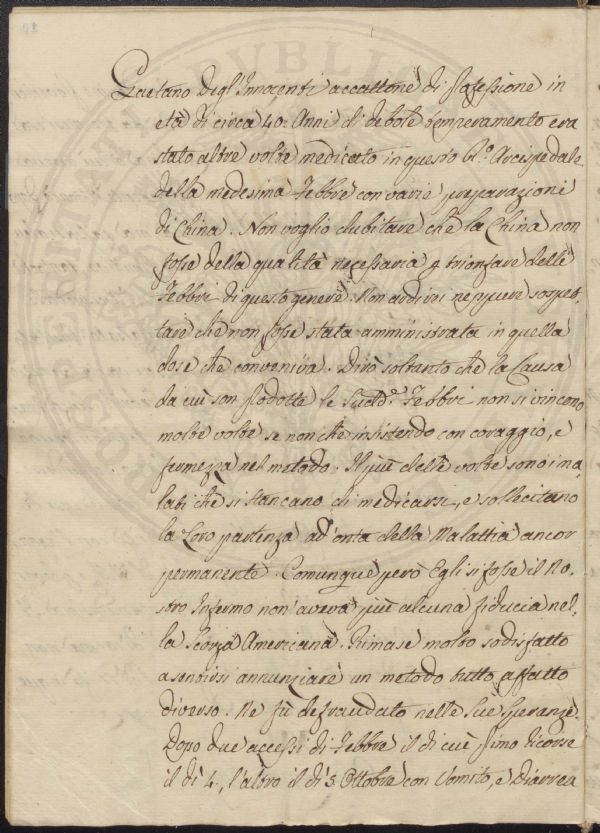 Gaetano Degl'Innocenti accattone di Professione in
età di circa 40. Anni di debole temperamento era
stato altre volte medicato in questo R.o Arcispedale
della medesima Febbre con varie preparazioni
di China. Non voglio dubitare che la China non
fosse della qualità necessaria p trionfare delle
Febbri di questo genere. Non ardirei neppure sospet-
tare che non fosse stata amministrata in quella
dose che conveniva. Dirò soltanto che la Causa
da cui son prodotte le Sudd.e Febbri non si vincono
molte volte se non che insistendo con coraggio, e
fermezza nel metodo. Il più delle volte sono i ma-
lati che si stancano di medicarsi, e sollecitano
la Loro partenza ad'onta della Malattia ancor
permanente. Comunque però Egli si fosse il No-
stro Infermo non aveva più alcuna fiducia nel-
la Scorza Americana. Rimase molto sodisfatto
a sentirsi annunziare un metodo tutto affatto
diverso. Ne fù defraudato nelle Sue Speranze.
Dopo due accessi di Febbre il di cui primo ricorse
il dì 4., l'altro il dì 5. Ottobre con Vomito, e Diarrea